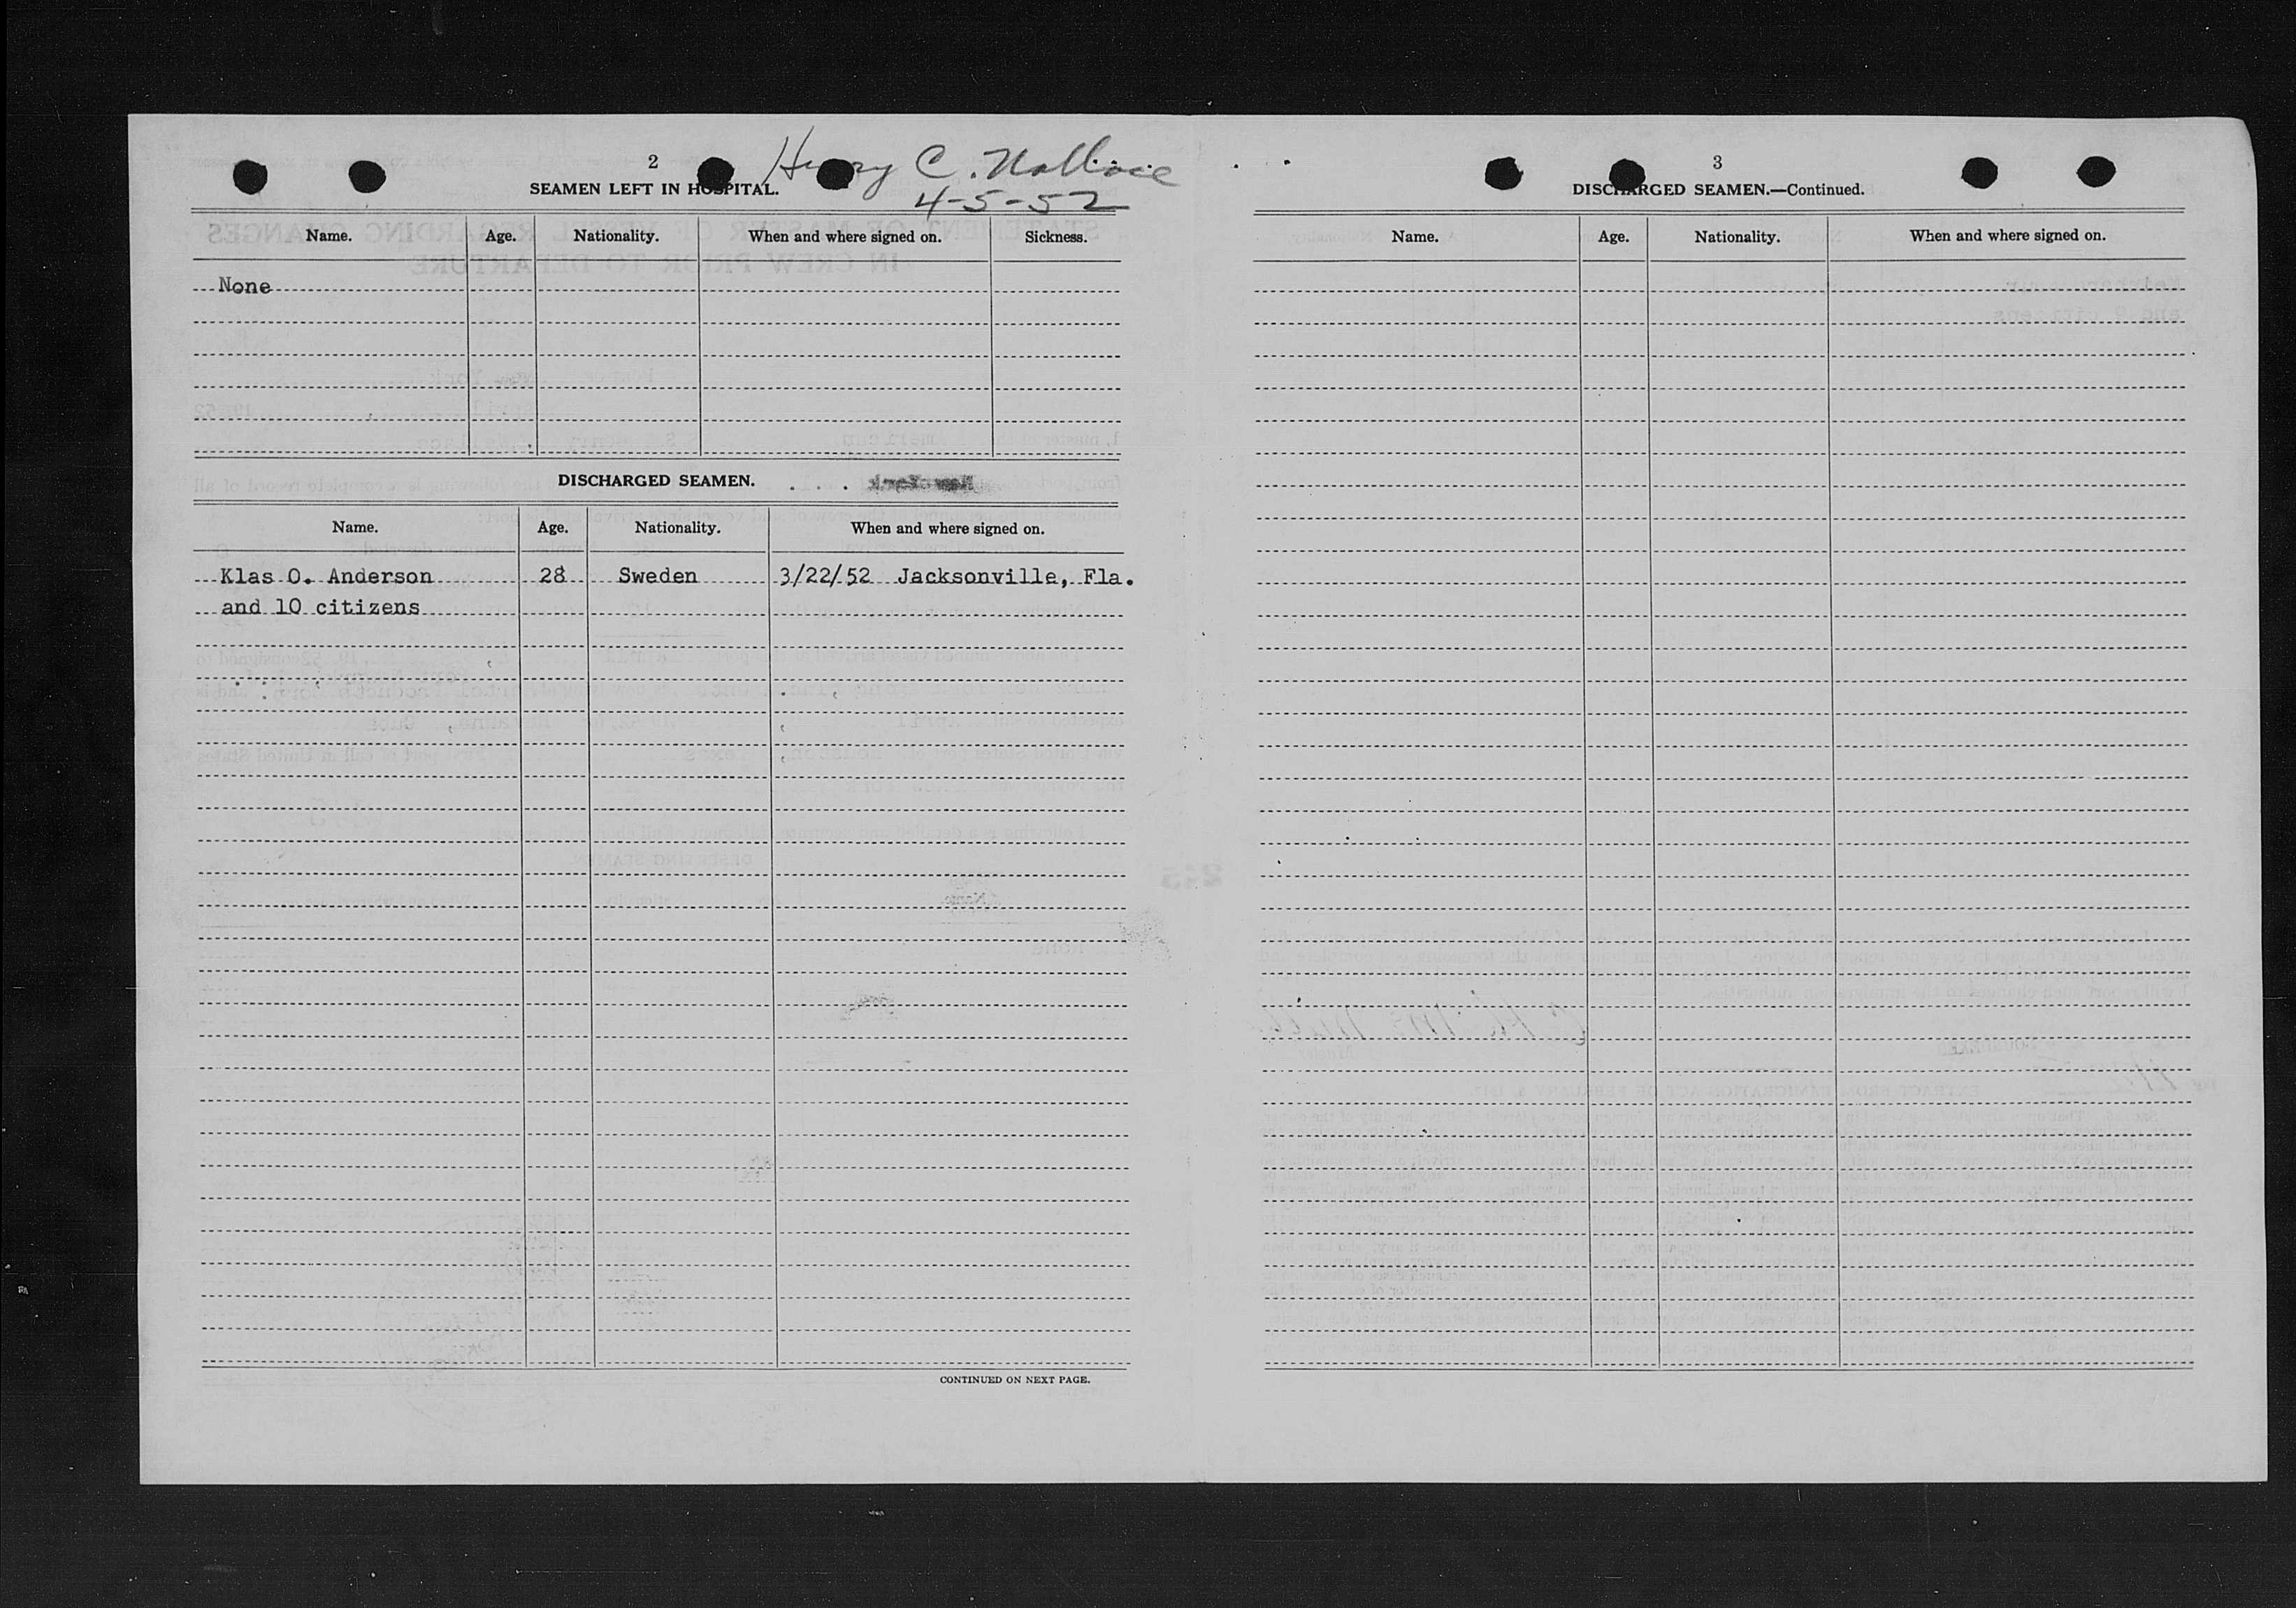 2
Henry C. Wallace
SEAMEN LEFT IN HOSPITAL.
4-5-52
Name. Age. Nationality. When and where signed on. Sickness.
None
DISCHARGED SEAMEN.
Name. Age. Nationality. When and where signed on.
Klas O. Anderson 28 Sweden 3/22/52 Jacksonville, Fla.
and 10 citizens
CONTINUED ON NEXT PAGE.
3
DISCHARGED SEAMEN.—Continued.
Name. Age. Nationality. When and where signed on.